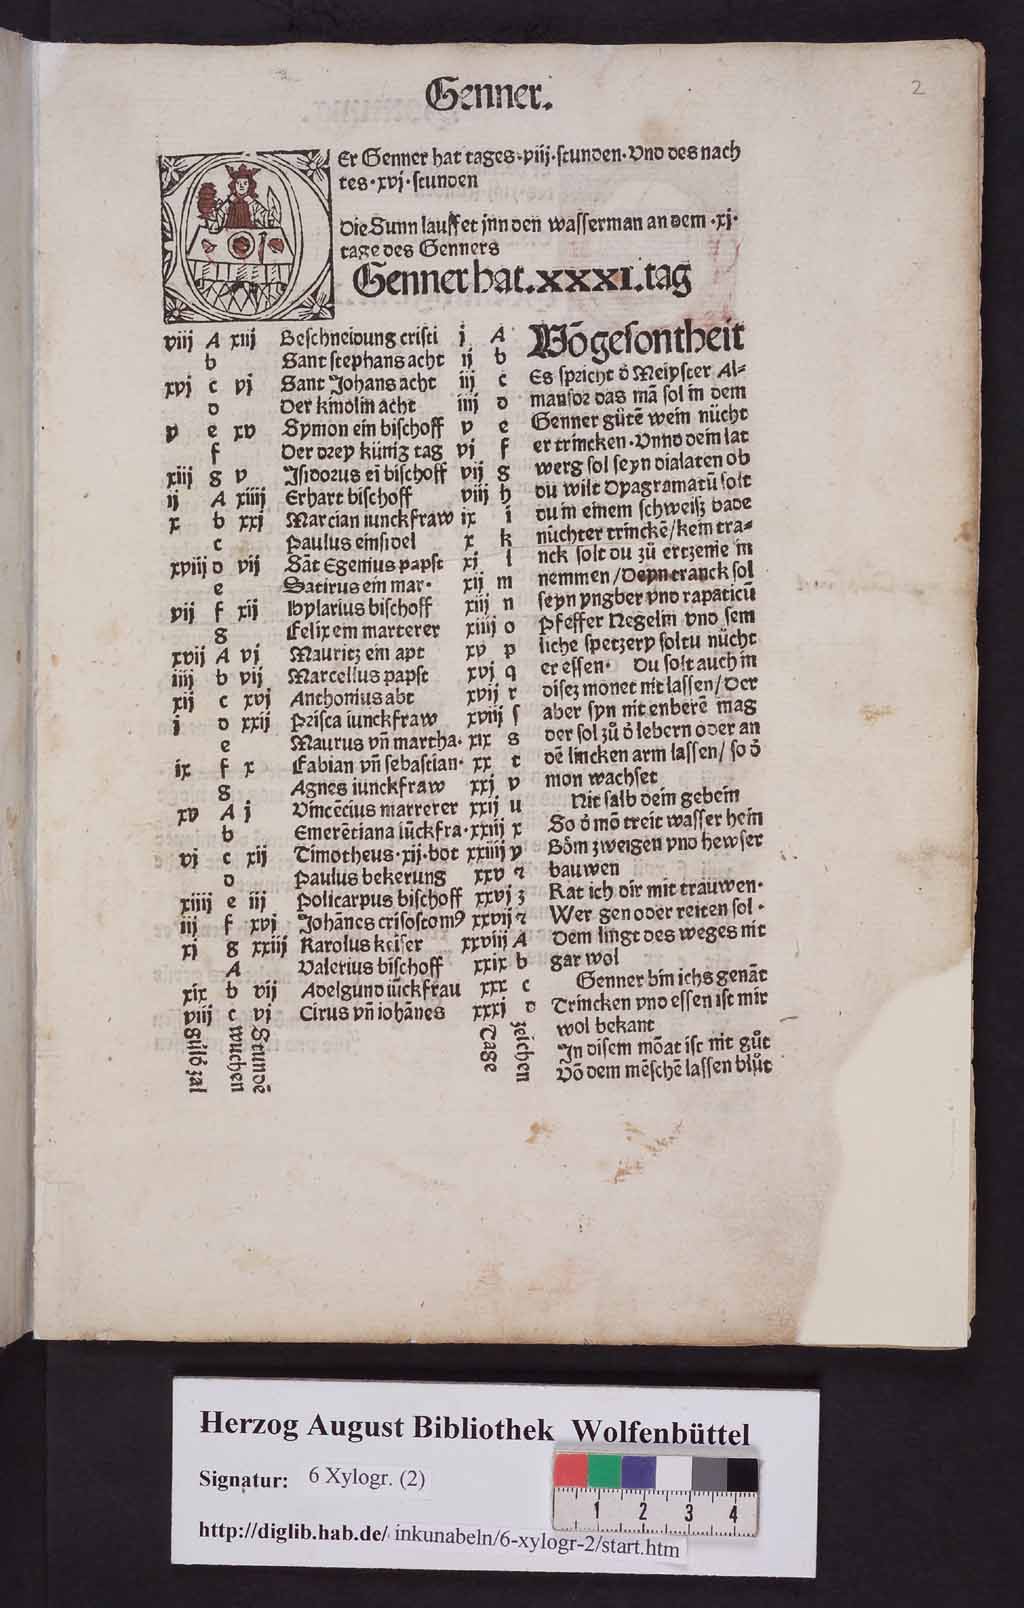 Genner.
2
Er Genner hat tages·viij·stunden·Vnd des nach
tes·xvj·stunden
Die Sunn lauffet jnn den wasserman an dem·xj·
tage des Genners
Genner hat.XXXI.tag
viij A xiij Beschneidung cristi j A
b Sant stephans acht ij b
xvj c vj Sant Johans acht iij c
d Der kindlin acht iiij d
v e xv Symon ein bischoff v e
f Der drey künig tag vj f
xiij g v Jsidorus eī bischoff vij g
ij A xiiij Erhart bischoff viij h
x b xxj Marcian iunckfraw ix i
c Paulus einsidel x k
xviij d vij Sāt Egenius papst xj l
e Satirus ein mar· xij m
vij f xij Hylarius bischoff xiij n
g Felix em marterer xiiij o
xvij A vj Mauritz ein apt xv p
iiij b vij Marcellus papst xvj q
xij c xvj Anthonius abt xvij r
j d xxij Prisca iunckfraw xviij ſ
e Maurus vn̄ martha· xix s
ix f x Fabian vn̄ sebastian· xx t
g Agnes iunckfraw xxj v
xv A j Vincēcius marterer xxij u
b Emerētiana iūckfra·xxiij x
vj c xij Timotheus·xij·bot xxiiij y
d Paulus bekerung xxv ꝛ
xiiij e iij Policarpus bischoff xxvj ʒ
iij f xvj Johānes crisostomꝰ xxvij ꝛ
xj g xxiij Karolus keiser xxviij A
A Valerius bischoff xxix b
xix b vij Adelgund iūckfrau xxx c
viij c vj Cirus vn̄ iohānes xxxj d
Güld zal
wuchen
Stundē
Tage
zeichen
Vō gesontheit
Es spricht d̄ Meipster Al⸗
mansor das mā sol in dem
Genner gůtē wein nücht
er trincken·Vnnd dein lat
werg sol seyn dialaten ob
du wilt Dyagramatū solt
du in einem schweiſz bade
nüchter trinckē/kein tra⸗
nck solt du zů ertzenie in
nemmen/Deyn tranck sol
seyn yngber vnd rapaticū
Pfeffer Negelin vnd sem
liche spetzery soltu nücht
er essen· Du solt auch in
disez monet nit lassen/Der
aber syn nit enberē mag
der sol zů d̄ lebern oder an
dē lincken arm lassen/so d̄
mon wachset
Nit salb dein gebein
So d̄ mō treit wasser hein
Böm zweigen vnd hewser
bauwen
Rat ich dir mit trauwen·
Wer gen oder reiten sol·
Dem lingt des weges nit
gar wol
Genner bin ichs genāt
Trincken vnd essen ist mir
wol bekant
In disem mōat ist nit gůt
Vō dem mēschē lassen blůt
Herzog August Bibliothek Wolfenbüttel
Signatur: 6 Xylogr. (2)
1 2 3 4
http://diglib.hab.de/ inkunabeln/6-xylogr-2/start.htm